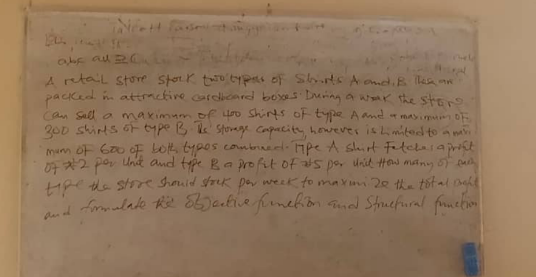 A retail store stock two types of shirts A and B
packed in attractive cardboard boxes. During a week the store
can sell a maximum of 400 shirts of type A and a maximum of
300 shirts of type B. Its storage capacity however is limited to a
mum of 600 of both types combined. Type A shirt a profit
of ₦2 per unit and type B a profit of ₦5 per unit How many of each
type the store should stock per week to maximize the total
and formulate the objective function and Structural function